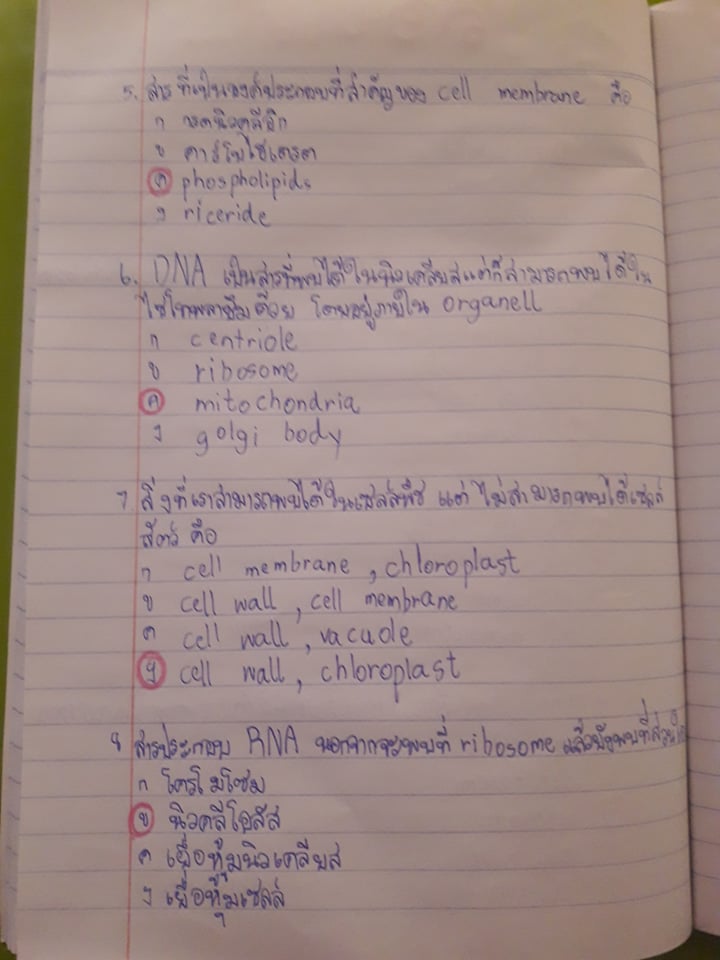 5. สารที่เป็นองค์ประกอบที่สำคัญของ cell membrane คือ
ก กรดนิวคลีอิก
ข คาร์โบไฮเดรต
ค phospholipids
ง riceride
6. DNA เป็นสารที่พบได้ในนิวเคลียสแต่ก็สามารถพบได้ใน
ไซโทพลาซึมด้วย โดยอยู่ภายใน organell
ก centriole
ข ribosome
ค mitochondria
ง golgi body
7. สิ่งที่เราสามารถพบได้ในเซลล์พืช แต่ไม่สามารถพบได้เซลล์
สัตว์ คือ
ก cell membrane , chloroplast
ข cell wall , cell membrane
ค cell wall , vacuole
ง cell wall , chloroplast
8 สารประกอบ RNA นอกจากจะพบที่ ribosome แล้วยังพบที่ส่วนใด
ก โครโมโซม
ข นิวคลีโอลัส
ค เยื่อหุ้มนิวเคลียส
ง เยื่อหุ้มเซลล์